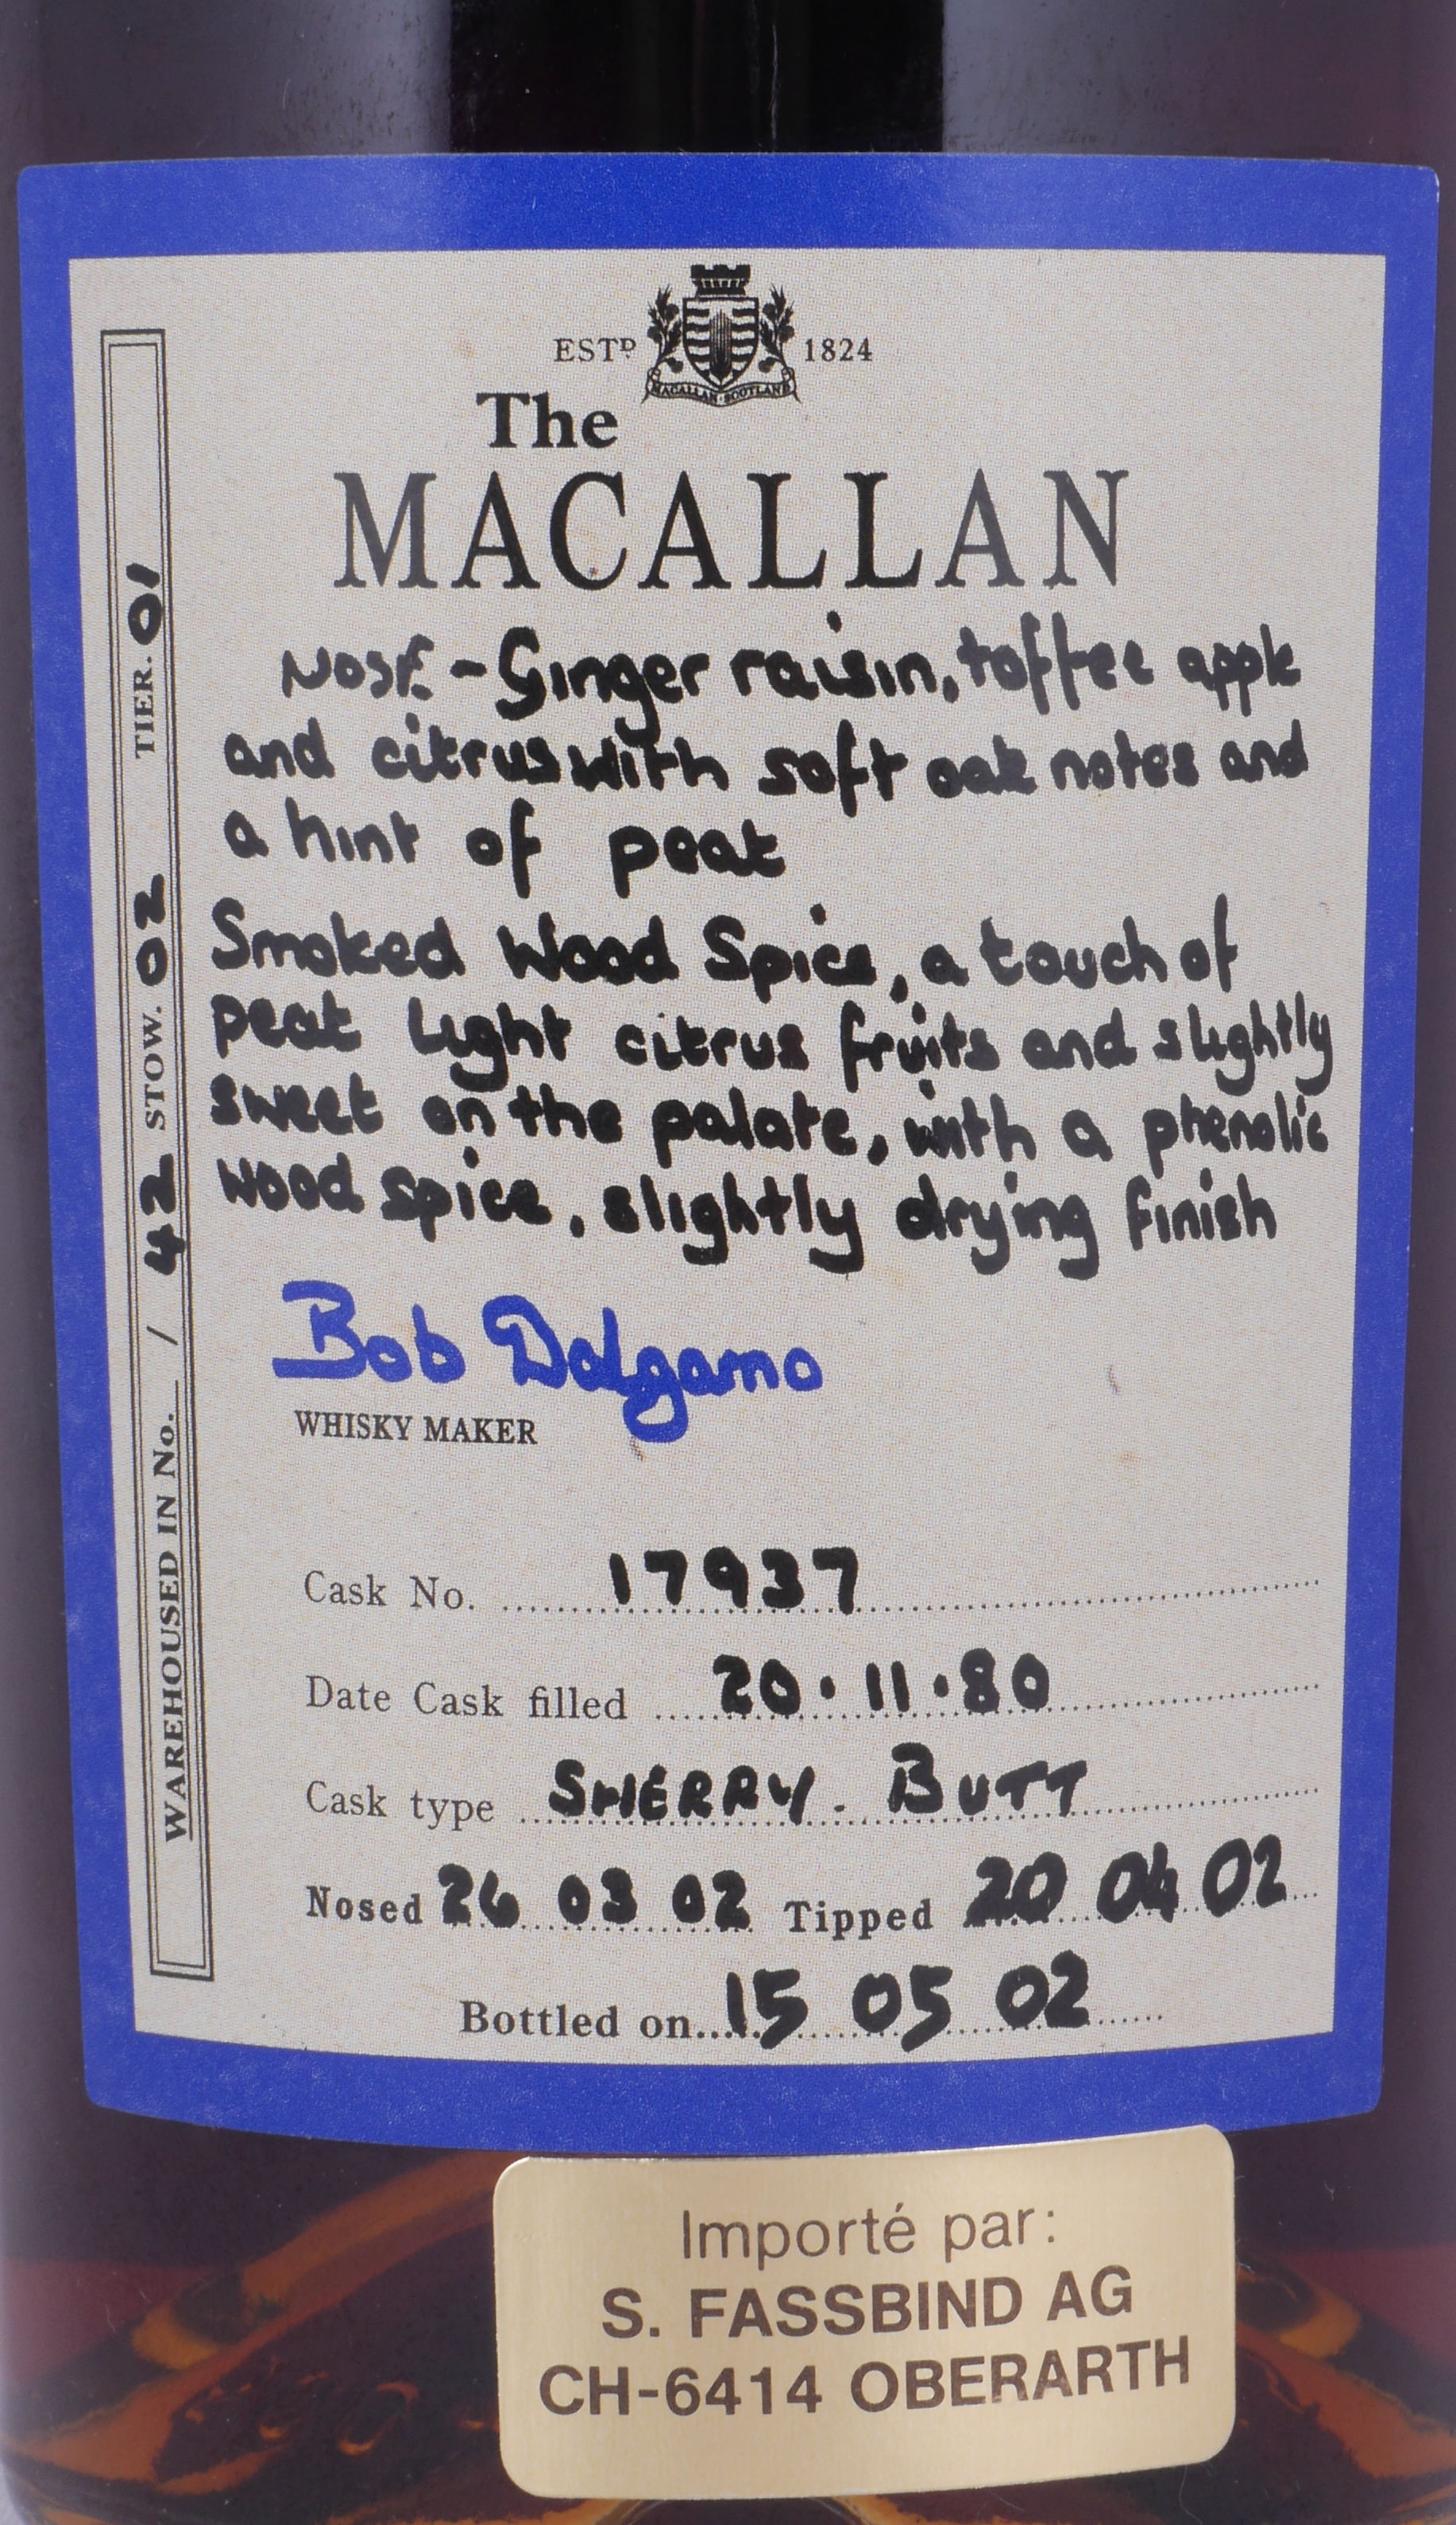 ESTD 1824
MACALLAN·SCOTLAND
The
MACALLAN
NOSE - Ginger raisin, toffee apple
and citrus with soft oak notes and
a hint of peat
Smoked Wood Spice, a touch of
peat light citrus fruits and slightly
sweet on the palate, with a phenolic
wood spice, slightly drying finish
Bob Dalgarno
WHISKY MAKER
Cask No. 17937
Date Cask filled 20·11·80
Cask type SHERRY. BUTT
Nosed 26 03 02 Tipped 20 04 02
Bottled on 15 05 02
WAREHOUSED IN No. / 42 STOW. 02 TIER. 01
Importé par:
S. FASSBIND AG
CH-6414 OBERARTH